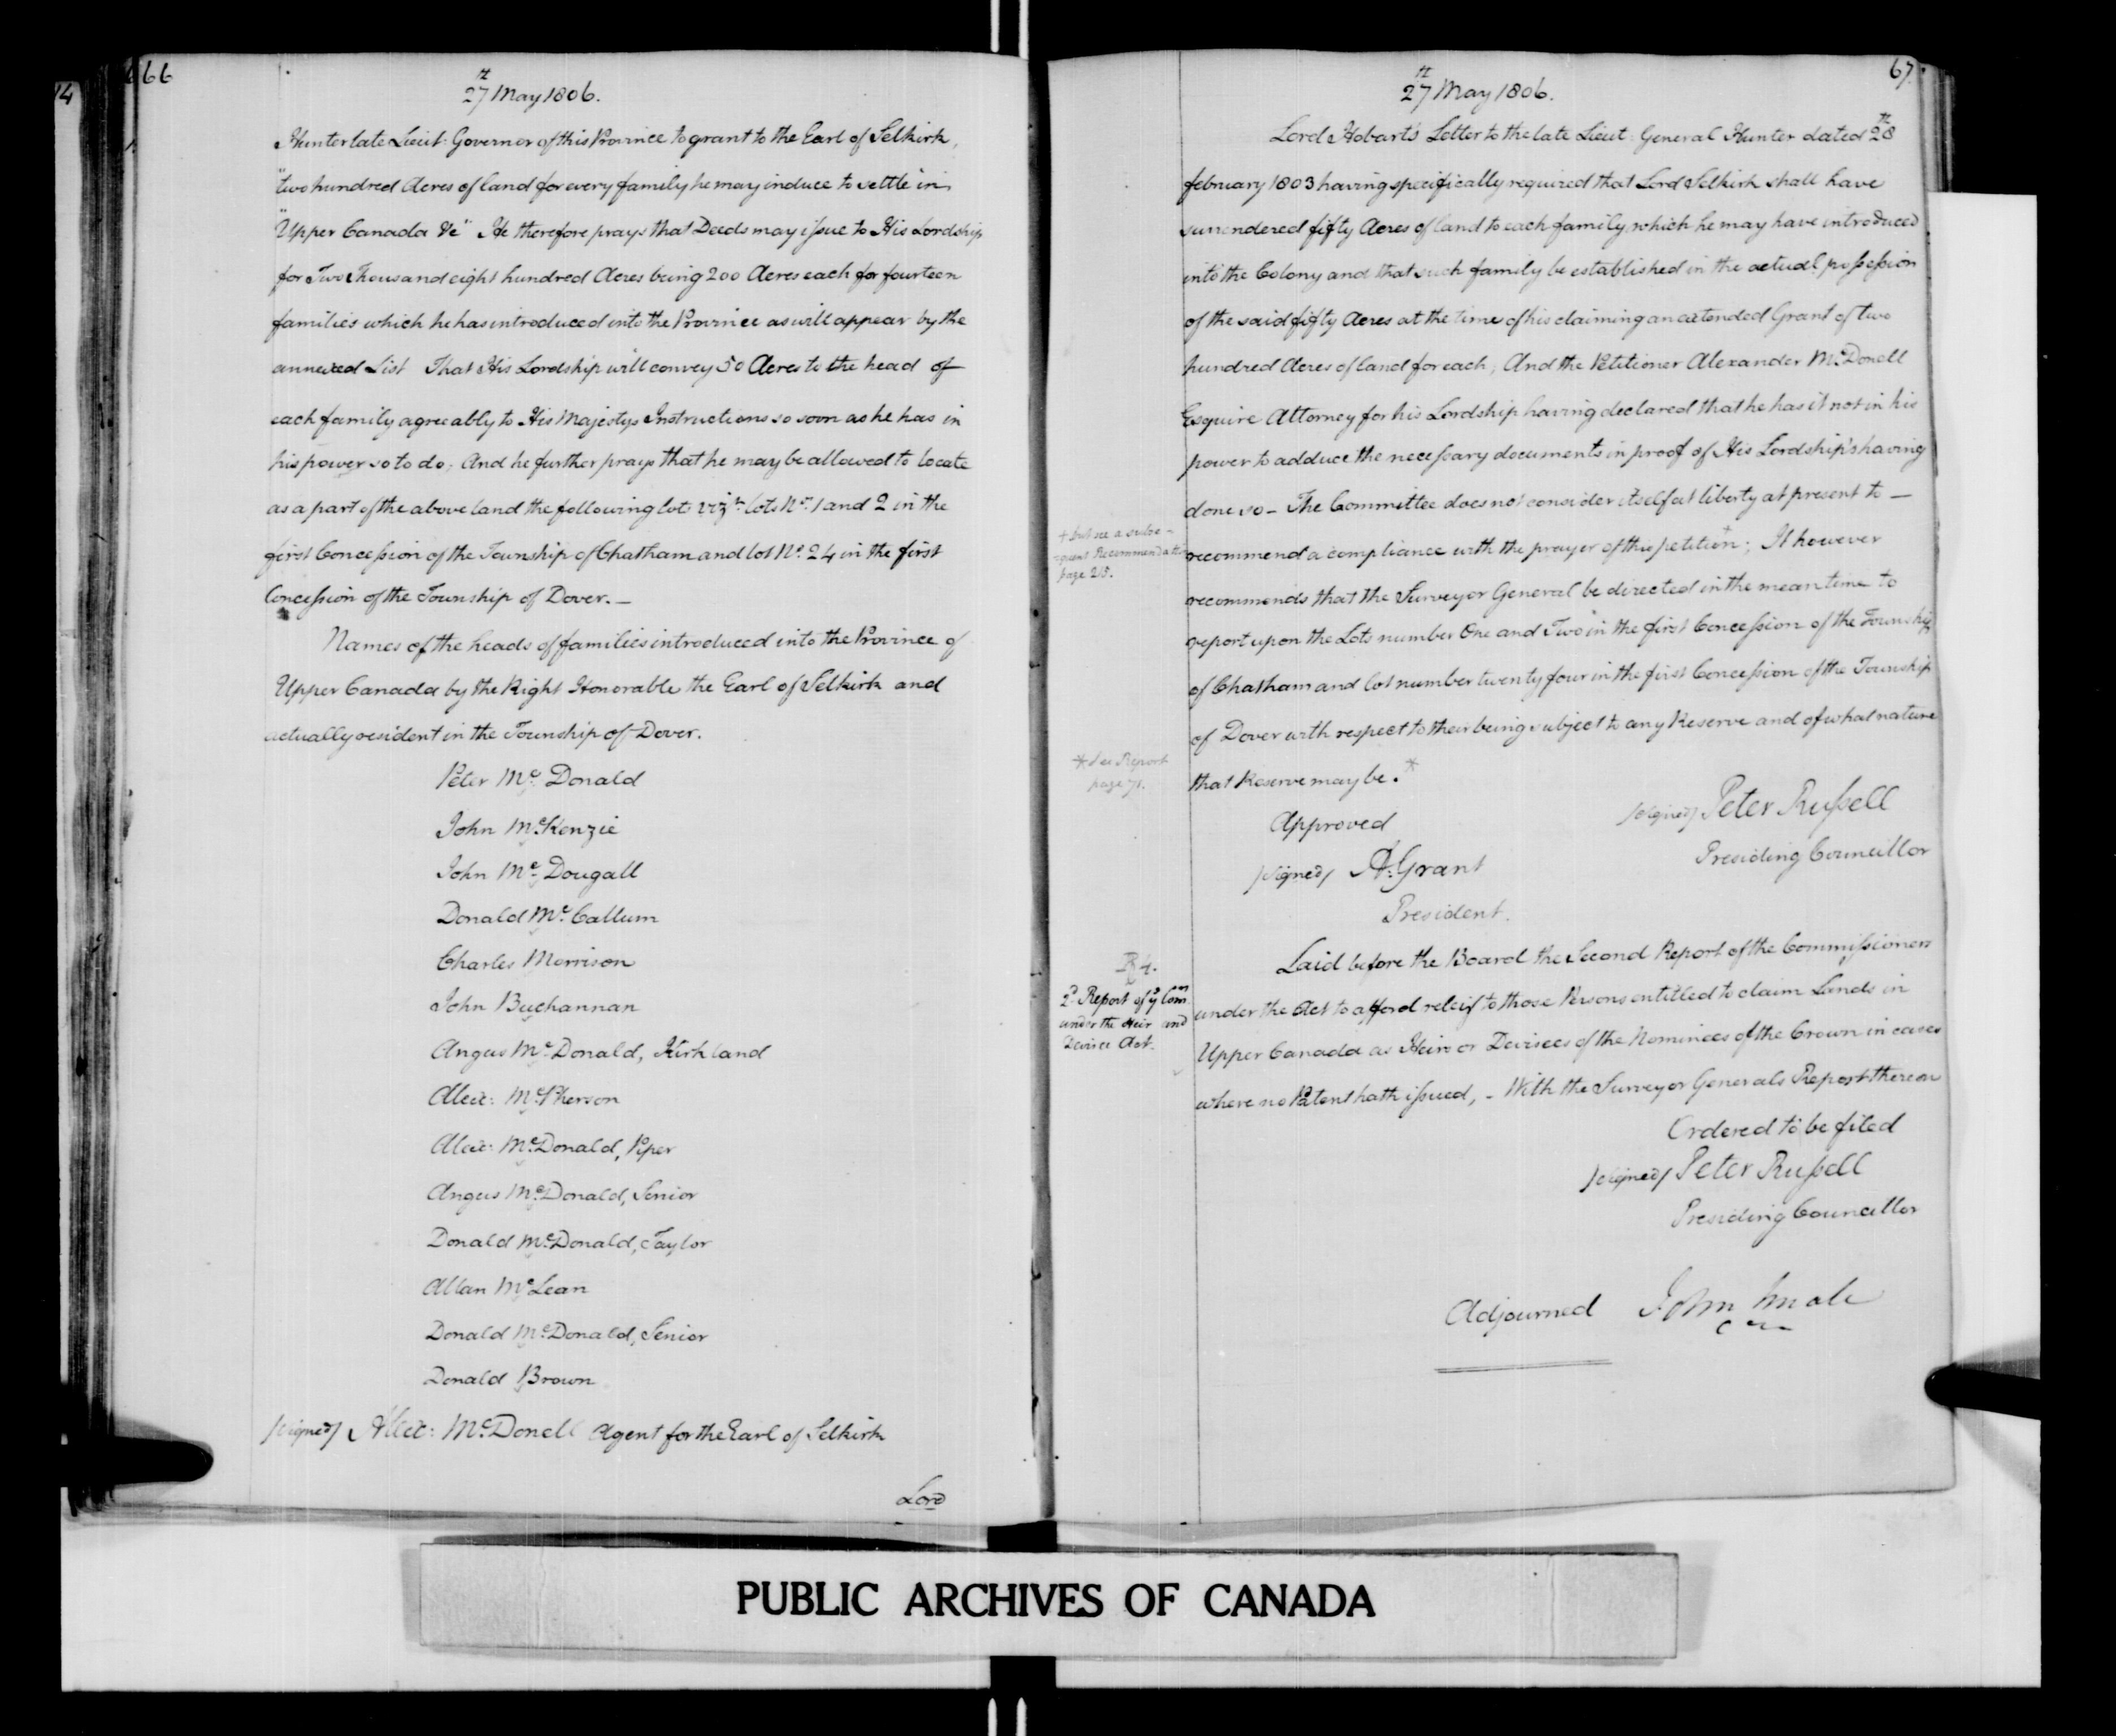 66
27th May 1806.
Hunter late Lieut: Governor of this Province to grant to the Earl of Selkirk,
"two hundred Acres of land for every family he may induce to settle in
"Upper Canada &c" He therefore prays that Deeds may issue to His Lordship
for Two Thousand eight hundred Acres being 200 Acres each for fourteen
families which he has introduced into the Province as will appear by the
annexed List That His Lordship will convey 50 Acres to the head of
each family agreeably to His Majestys Instructions so soon as he has in
his power so to do; And he further prays that he may be allowed to locate
as a part of the above land the following lots vizt. lots Nos. 1 and 2 in the
first Concession of the Township of Chatham and lot No. 24 in the first
Concession of the Township of Dover. —
Names of the heads of families introduced into the Province of
Upper Canada by the Right Honorable the Earl of Selkirk and
actually resident in the Township of Dover.
Peter McDonald
John McKenzie
John McDougall
Donald McCallum
Charles Morrison
John Buchannan
Angus McDonald, Kirkland
Alexr: McPherson
Alexr: McDonald, Piper
Angus McDonald, Senior
Donald McDonald, Taylor
Allan McLean
Donald McDonald, Senior
Donald Brown
/signed/ Alexr: McDonell Agent for the Earl of Selkirk
Lord
67.
27th May 1806.
Lord Hobart's Letter to the late Lieut: General Hunter dated 28th
february 1803 having specifically required that Lord Selkirk shall have
surrendered fifty Acres of land to each family which he may have introduced
into the Colony and that such family be established in the actual possession
of the said fifty Acres at the time of his claiming an extended Grant of two
hundred Acres of land for each; And the Petitioner Alexander McDonell
Esquire Attorney for his Lordship having declared that he has it not in his
power to adduce the necessary documents in proof of His Lordship's having
done so – The Committee does not consider itself at liberty at present to —
recommend a compliance with the prayer of this petition+; It however
recommends that the Surveyor General be directed in the mean time to
report upon the Lots number One and Two in the first Concession of the Township
of Chatham and lot number twenty four in the first Concession of the Township
of Dover with respect to their being subject to any Reserve and of what nature
that Reserve may be.*
+ but see a subse-
quent Recommendation
page 215.
* see Report
page 71.
Approved
/signed/ Peter Russell
Presiding Councillor
/signed/ A: Grant
President.
B 4.
2d. Report of ye Comrs
under the Heir and
Devisee Act.
Laid before the Board the Second Report of the Commissioners
under the Act to afford releif to those Persons entitled to claim Lands in
Upper Canada as Heirs or Devisees of the Nominees of the Crown in cases
where no Patent hath issued, – With the Surveyor Generals Report thereon
Ordered to be filed
/signed/ Peter Russell
Presiding Councillor
Adjourned John
PUBLIC ARCHIVES OF CANADA